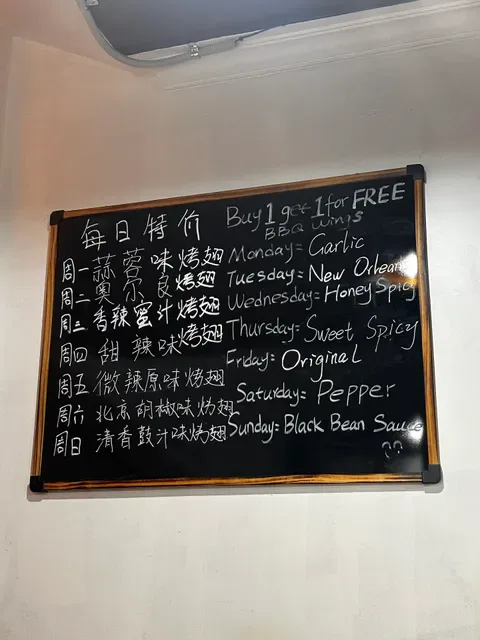 每日特价
周一蒜蓉味烤翅
周二奥尔良烤翅
周三香辣蜜汁烤翅
周四甜辣味烤翅
周五微辣原味烤翅
周六北京胡椒味烤翅
周日清香鼓汁味烤翅
Buy 1 get 1 for FREE
BBQ Wings
Monday= Garlic
Tuesday= New Orleans
Wednesday= Honey Spicy
Thursday= Sweet Spicy
Friday= Original
Saturday= Pepper
Sunday= Black Bean Sauce